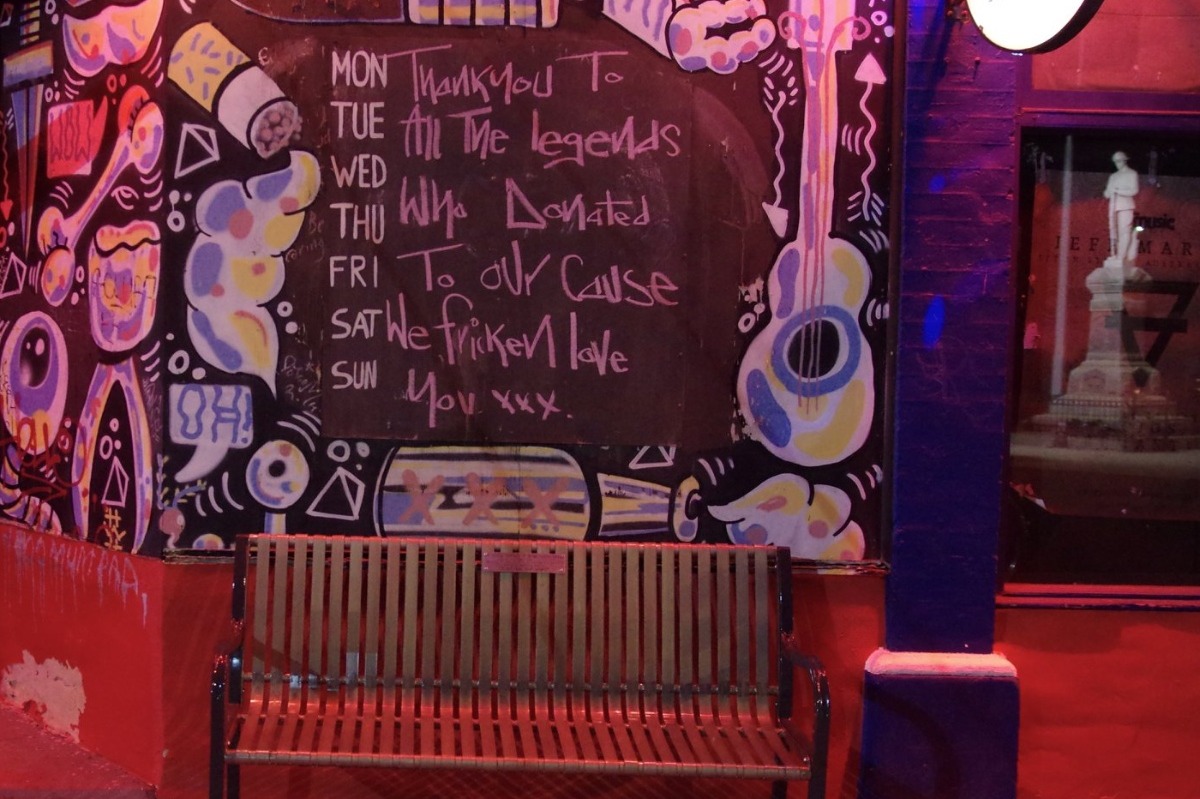 MON Thankyou To
TUE All The legends
WED
THU Who Donated
FRI To our Cause
SAT We fricken love
SUN You xxx.
WOW
OH!
XXX
music